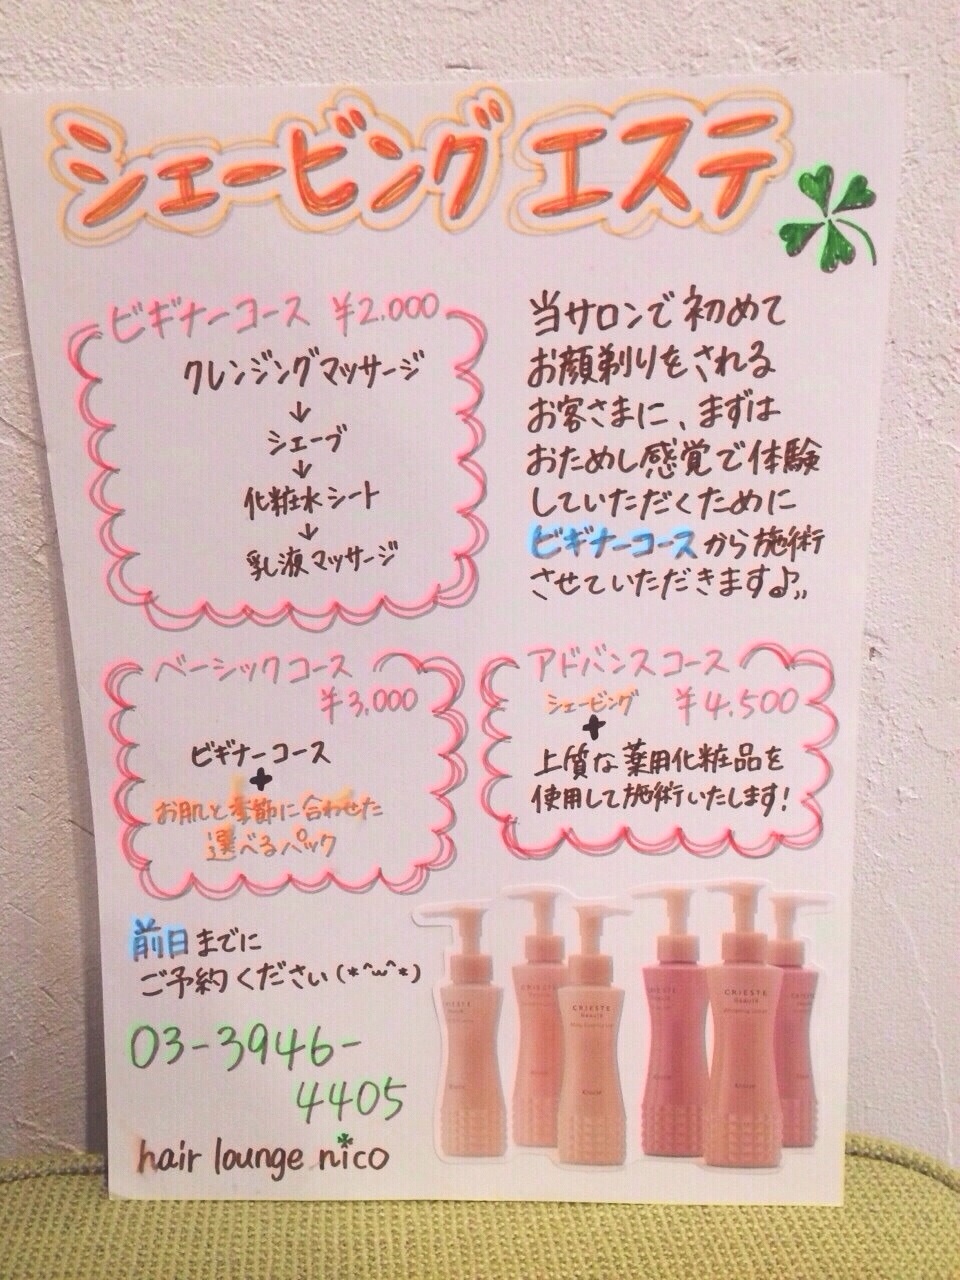 シェービング エステ
ビギナーコース ¥2.000
クレンジングマッサージ
↓
シェーブ
↓
化粧水シート
↓
乳液マッサージ
当サロンで初めて
お顔剃りをされる
お客さまに、まずは
おためし感覚で体験
していただくために
ビギナーコースから施術
させていただきます♪
ベーシックコース
¥3,000
ビギナーコース
+
お肌と季節に合わせた
選べるパック
アドバンスコース
シェービング ¥4.500
+
上質な薬用化粧品を
使用して施術いたします!
前日までに
ご予約ください(*^ω^*)
03-3946-
4405
hair lounge nico
CRIESTE
Beauté
CRIESTE
Beauté